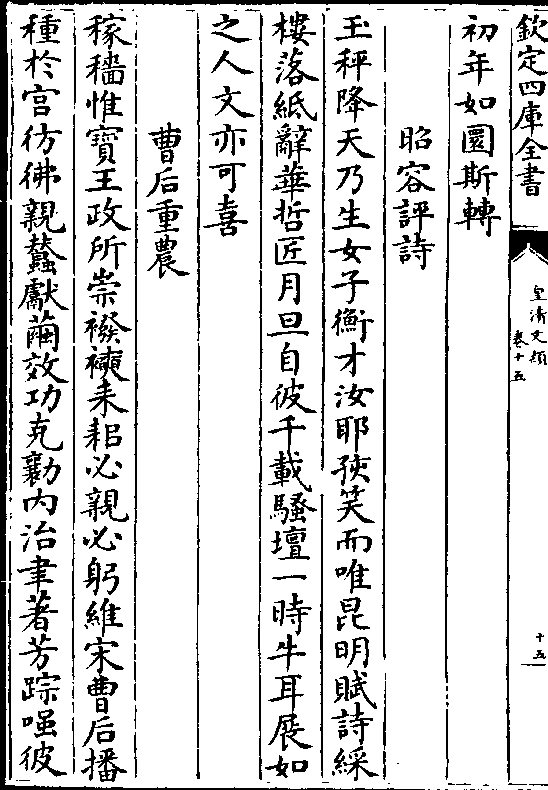 欽定四庫全書
皇清文穎
卷十五
十五
初年如圜斯轉
昭容評詩
玉秤降天乃生女子衡才汝耶孩笑而唯昆明賦詩綵
樓落紙辭華哲匠月旦自彼千載騷壇一時牛耳展如
之人文亦可喜
曹后重農
稼穡惟寶王政所崇襏襫耒耜必親必躬維宋曹后播
種於宫彷彿親蠶獻繭效功克勷内治聿著芳踪嗤彼